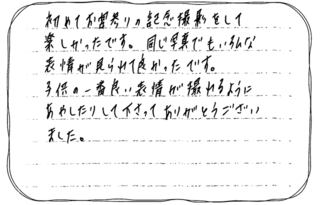 初めてお宮参りの記念撮影をして
楽しかったです。同じ写真でもいろんな
表情が見られて良かったです。
子供の一番良い表情が撮れるように
あやしたりして下さってありがとうござい
ました。